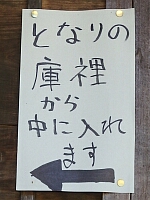 となりの
庫裡
から
中に入れ
ます